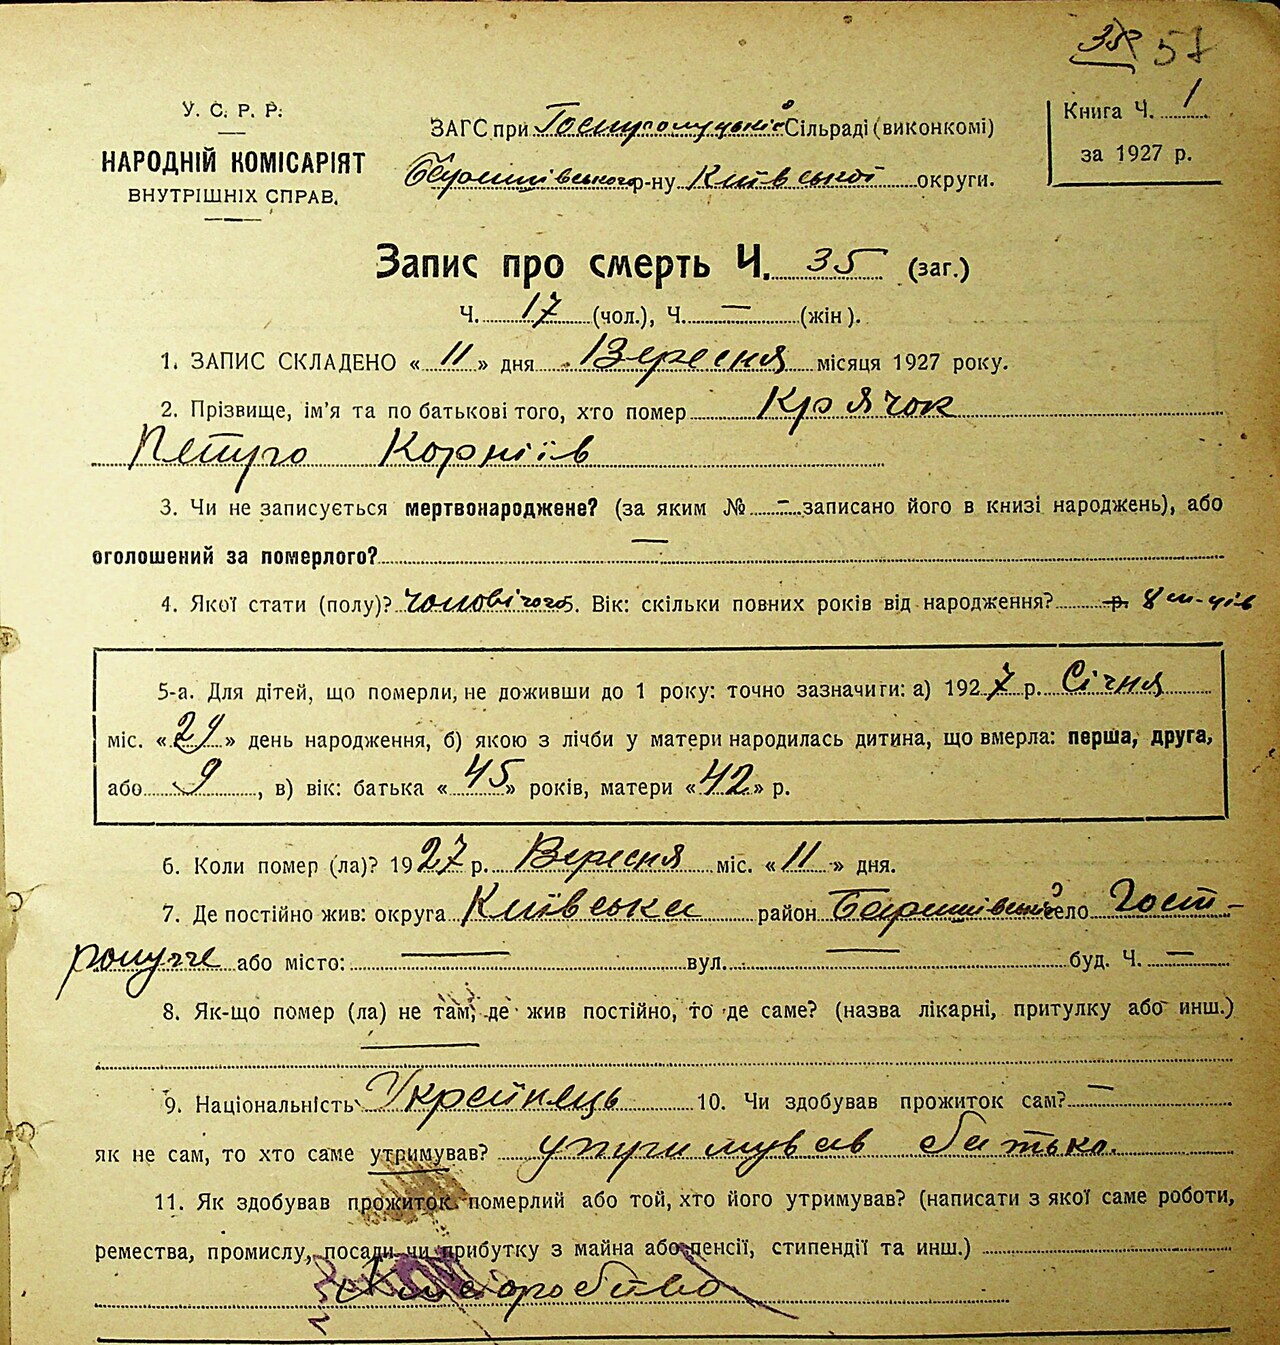 35 57
У. С. Р. Р.
НАРОДНІЙ КОМІСАРІЯТ
ВНУТРІШНІХ СПРАВ.
ЗАГС при Гостролуцькій Сільраді (виконкомі)
Баришівського р-ну Київської округи.
Книга Ч. 1
за 1927 р.
Запис про смерть Ч. 35 (заг.)
Ч. 17 (чол.), Ч. — (жін).
1. ЗАПИС СКЛАДЕНО « 11 » дня Вересня місяця 1927 року.
2. Прізвище, ім'я та по батькові того, хто помер Крячок
Петро Корніїв
3. Чи не записується мертвонароджене? (за яким № — записано його в книзі народжень), або
оголошений за померлого? —
4. Якої стати (полу)? чоловічої. Вік: скільки повних років від народження? р. 8 м-ців
5-а. Для дітей, що померли, не доживши до 1 року: точно зазначити: а) 1927 р. Січня
міс. « 29 » день народження, б) якою з лічби у матери народилась дитина, що вмерла: перша, друга,
або 9, в) вік: батька « 45 » років, матери « 42 » р.
6. Коли помер (ла)? 1927 р. Вересня міс. « 11 » дня.
7. Де постійно жив: округа Київська район Баришівський село Гост-
ролуччє або місто: — вул. — буд. Ч. —
8. Як-що помер (ла) не там, де жив постійно, то де саме? (назва лікарні, притулку або инш.)
—
9. Національність Украйнець 10. Чи здобував прожиток сам? —
як не сам, то хто саме утримував? утримував батько.
11. Як здобував прожиток померлий або той, хто його утримував? (написати з якої саме роботи,
ремества, промислу, посади чи прибутку з майна або пенсії, стипендії та инш.)
Хліборобство